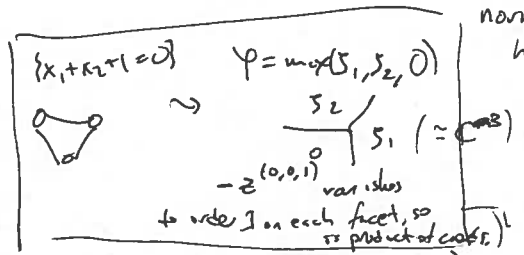 {x₁+x₂+1=0} φ=max(ξ₁,ξ₂,0)
⇝
ξ₂
ξ₁ (≃ ℂ³)
0
-z^(0,0,1) vanishes
to order 1 on each facet, so
is product of coords.